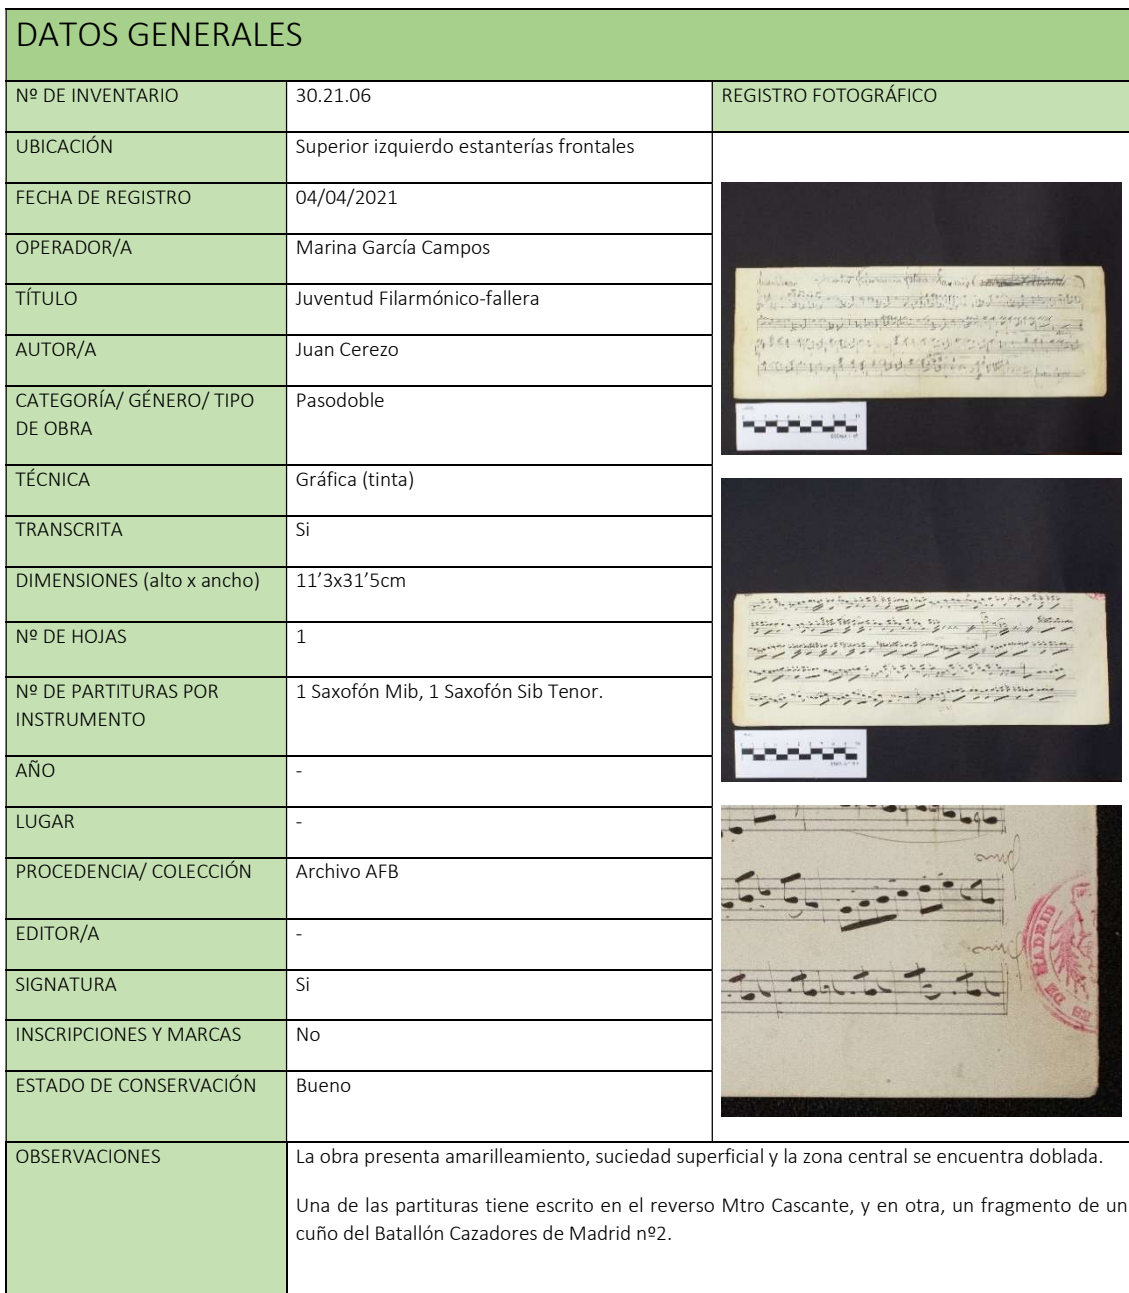 DATOS GENERALES
Nº DE INVENTARIO
30.21.06
REGISTRO FOTOGRÁFICO
UBICACIÓN
Superior izquierdo estanterías frontales
FECHA DE REGISTRO
04/04/2021
OPERADOR/A
Marina García Campos
TÍTULO
Juventud Filarmónico-fallera
AUTOR/A
Juan Cerezo
CATEGORÍA/ GÉNERO/ TIPO
DE OBRA
Pasodoble
TÉCNICA
Gráfica (tinta)
TRANSCRITA
Si
DIMENSIONES (alto x ancho)
11’3x31’5cm
Nº DE HOJAS
1
Nº DE PARTITURAS POR
INSTRUMENTO
1 Saxofón Mib, 1 Saxofón Sib Tenor.
AÑO
-
LUGAR
-
PROCEDENCIA/ COLECCIÓN
Archivo AFB
EDITOR/A
-
SIGNATURA
Si
INSCRIPCIONES Y MARCAS
No
ESTADO DE CONSERVACIÓN
Bueno
DE MADRID
OBSERVACIONES
La obra presenta amarilleamiento, suciedad superficial y la zona central se encuentra doblada.
Una de las partituras tiene escrito en el reverso Mtro Cascante, y en otra, un fragmento de un
cuño del Batallón Cazadores de Madrid nº2.